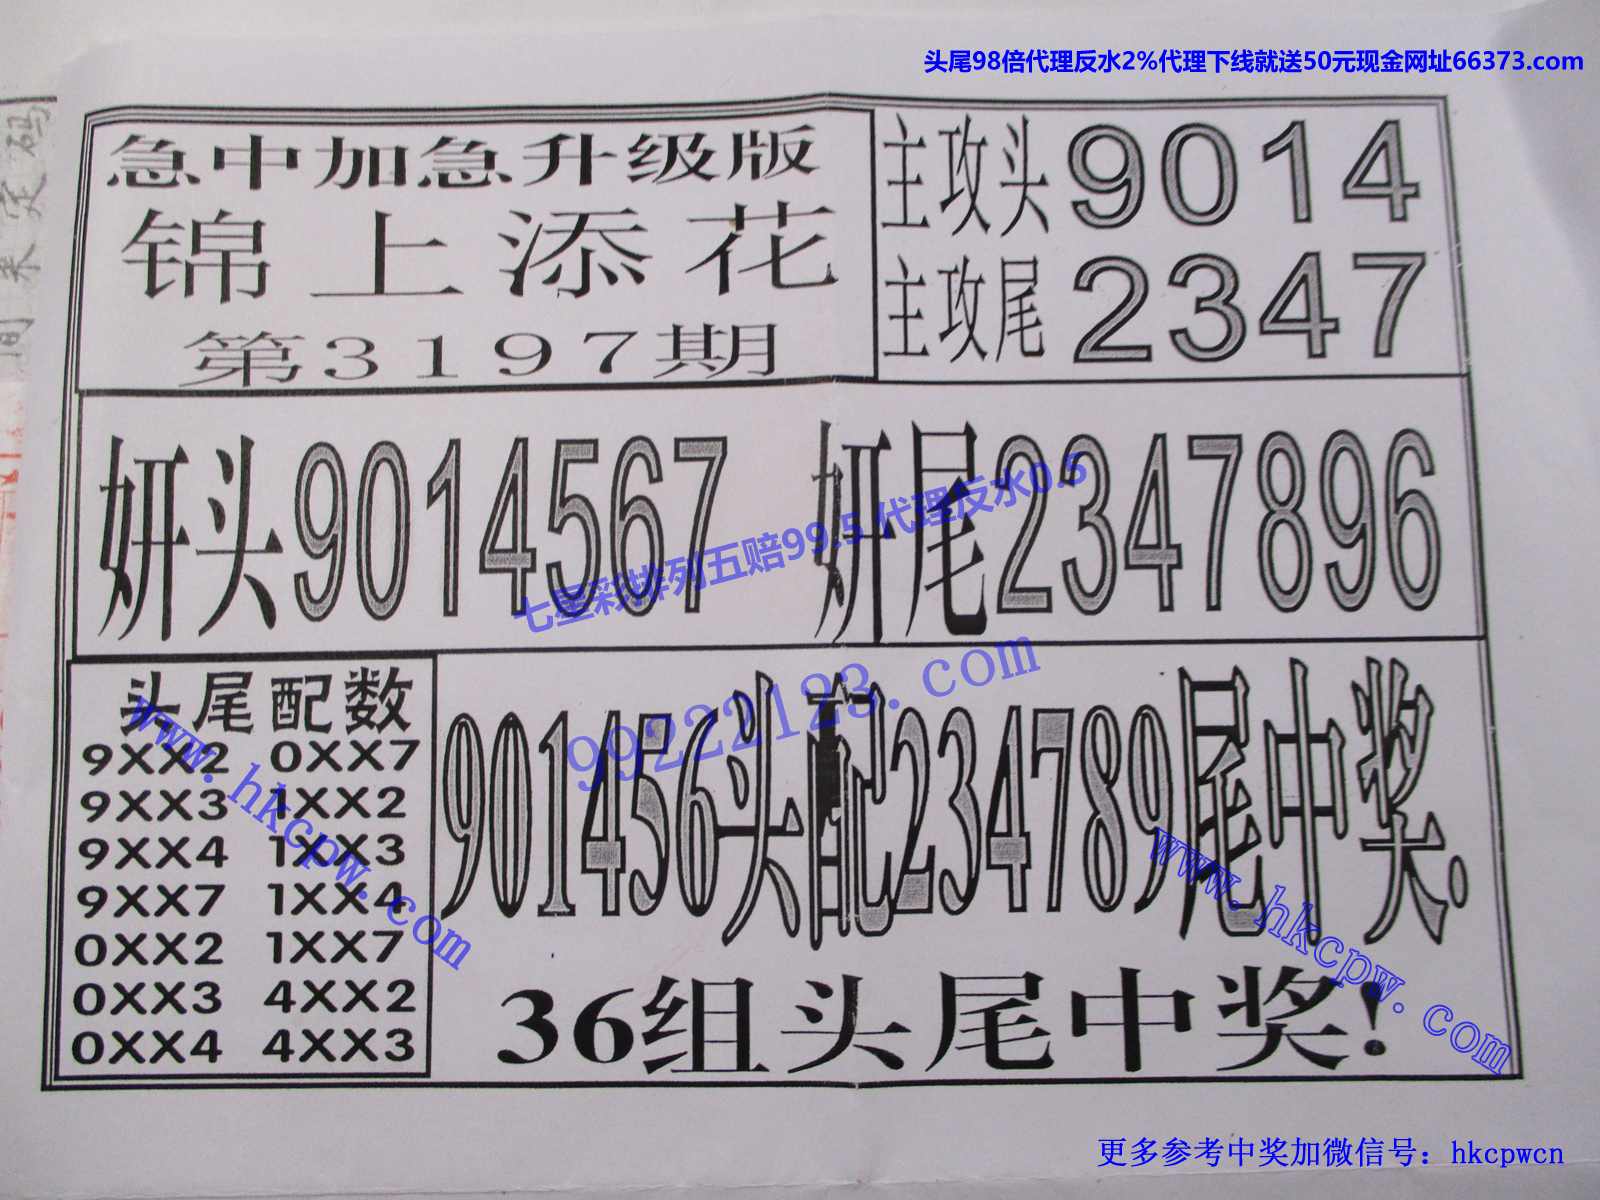 头尾98倍代理反水2%代理下线就送50元现金网址66373.com
急中加急升级版
锦上添花
第3197期
主攻头9014
主攻尾2347
妍头9014567 妍尾2347896
七星彩排列五赔99.5 代理反水0.5
99222123.com
头尾配数
9XX2 0XX7
9XX3 1XX2
9XX4 1XX3
9XX7 1XX4
0XX2 1XX7
0XX3 4XX2
0XX4 4XX3
www.hkcpw.com
901456头配234789尾中奖.
36组头尾中奖!
www.hkcpw.com
更多参考中奖加微信号：hkcpwcn